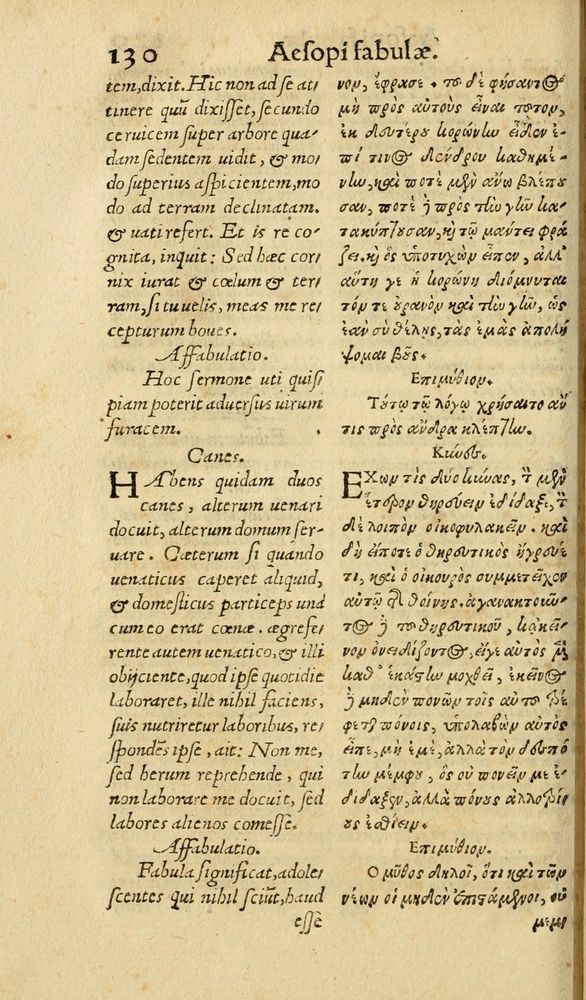 130 Aesopi fabulæ.
tem, dixit. Hic non ad se at/
tinere quũ dixisset, secundo
ceruicem super arbore qua/
dam sedentem uidit, & mo/
do superius aspicientem, mo
do ad terram declinatam.
& uati refert. Et is re co/
gnita, inquit: Sed hæc cor/
nix iurat & cœlum & ter/
ram, si tu uelis, meas me re/
cepturum boues.
Affabulatio.
Hoc sermone uti quisi/
piam poterit aduersus uirum
furacem.
Canes.
HAbens quidam duos
canes, alterum uenari
docuit, alterum domum ser/
uare. Cæterum si quando
uenaticus caperet aliquid,
& domesticus particeps unà
cum eo erat cœnæ. ægrefe/
rente autem uenatico, & illi
obijciente, quod ipse quotidie
laboraret, ille nihil faciens,
suis nutriretur laboribus, re/
spondẽs ipse, ait: Non me,
sed herum reprehende, qui
non laborare me docuit, sed
labores alienos comesse.
Affabulatio.
Fabula significat, adole/
scentes qui nihil sciũt, haud
esse
νον, ἔφρασε. τοῦ δὲ φήσαντος
μὴ πρὸς αὐτοὺς εἶναι τοῦτον,
ἐκ δευτέρου κορώνην εἶδεν ἐ/
πί τινος δένδρου καθημέ/
νην, καὶ ποτὲ μὲν ἄνω βλέπου
σαν, ποτὲ ἢ πρὸς τὴν γῆν κα/
τακύπτουσαν, κὴ τῷ μάντει φρά
ζει. κὴ ὃς ὑποτυχὼν εἶπεν, ἀλλ'
αὕτη γε ἡ κορώνη διόμνυται
τόν τε οὐρανὸν καὶ τὴν γῆν, ὡς
ἐὰν σὺ θέλῃς, τὰς ἐμὰς ἀπολή
ψομαι βοῦς.
Επιμύθιον.
Τούτῳ τῷ λόγῳ χρήσαιτο ἄν
τις πρὸς ἄνδρα κλέπτην.
Κύνες.
ΕΧων τὶς δύο κύνας, τὸν μὲν
ἕτερον θηρεύειν ἐδίδαξε, τὸν
δὲ λοιπὸν οἰκοφυλακεῖν. καὶ
δὴ εἴποτε ὁ θηρευτικὸς ἤγρευέ
τι, καὶ ὁ οἰκουρὸς συμμετεῖχεν
αὐτῷ τῆς θοίνης. ἀγανακτοῦν/
τος ἢ τοῦ θηρευτικοῦ, κἀκεῖ/
νον ὀνειδίζοντος, εἴγε αὐτὸς μὲν
καθ' ἑκάστην μοχθεῖ, ἐκεῖνος
ἢ μηδὲν πονῶν τοῖς αὐτοῦ τρέ/
φεται πόνοις, ὑπολαβὼν αὐτὸς
εἶπε, μὴ ἐμὲ, ἀλλὰ τὸν δεσπό
την μέμφου, ὃς οὐ πονεῖν με ἐ/
δίδαξεν, ἀλλὰ πόνους ἀλλοτρί/
ους ἐσθίειν.
Επιμύθιον.
Ο μῦθος δηλοῖ, ὅτι καὶ τῶν
νέων οἱ μηδὲν ἐπιστάμενοι, οὐ
μεμ/